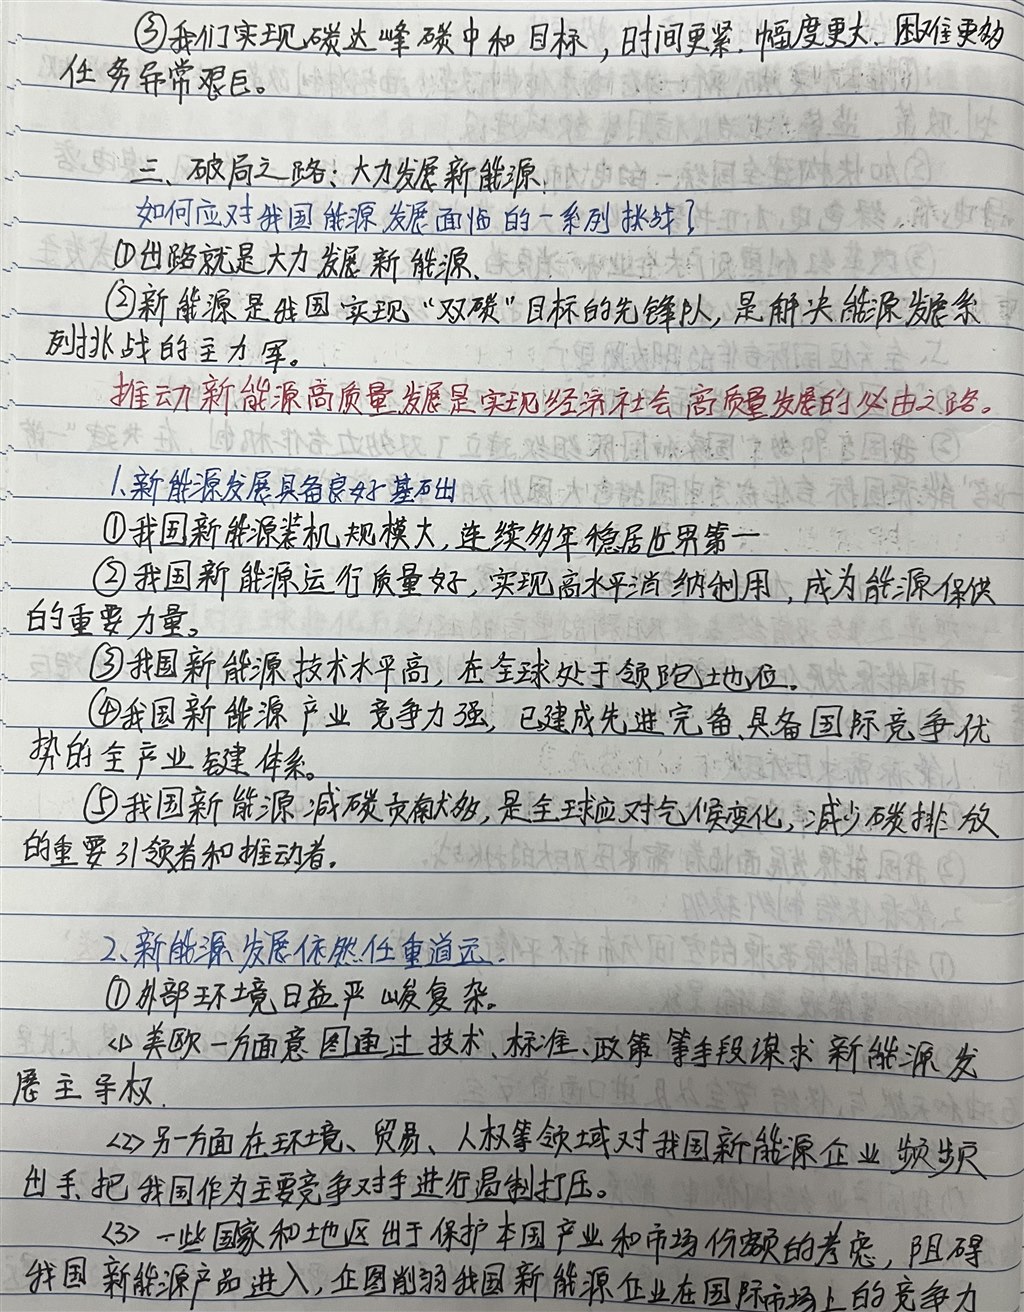 ③我们实现碳达峰碳中和目标，时间更紧、幅度更大、困难更多
任务异常艰巨。
三、破局之路：大力发展新能源.
如何应对我国能源发展面临的一系列挑战？
①出路就是大力发展新能源、
②新能源是我国实现“双碳”目标的先锋队，是解决能源发展系
列挑战的主力军。
推动新能源高质量发展是实现经济社会高质量发展的必由之路。
1、新能源发展具备良好基础
①我国新能源装机规模大，连续多年稳居世界第一
②我国新能源运行质量好，实现高水平消纳利用，成为能源保供
的重要力量。
③我国新能源技术水平高，在全球处于领跑地位。
④我国新能源产业竞争力强，已建成先进完备、具备国际竞争优
势的全产业链体系。
⑤我国新能源减碳贡献多，是全球应对气候变化，减少碳排放
的重要引领者和推动者。
2、新能源发展依然任重道远.
①外部环境日益严峻复杂。
<1> 美欧一方面意图通过技术、标准、政策等手段谋求新能源发
展主导权.
<2> 另一方面在环境、贸易、人权等领域对我国新能源企业频频
出手、把我国作为主要竞争对手进行遏制打压。
<3> 一些国家和地区出于保护本国产业和市场份额的考虑，阻碍
我国新能源产品进入，企图削弱我国新能源企业在国际市场上的竞争力